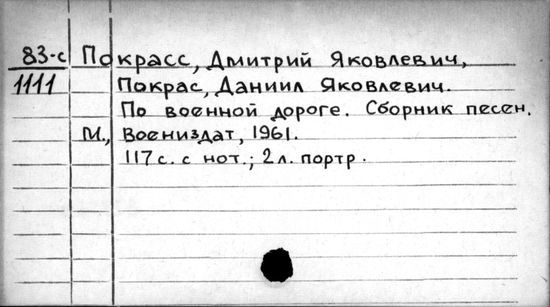 83-с Покрасс, Дмитрий Яковлевич,
1111 Покрас, Даниил Яковлевич.
По военной дороге. Сборник песен.
М., Воениздат, 1961.
117 с. с нот.; 2 л. портр.